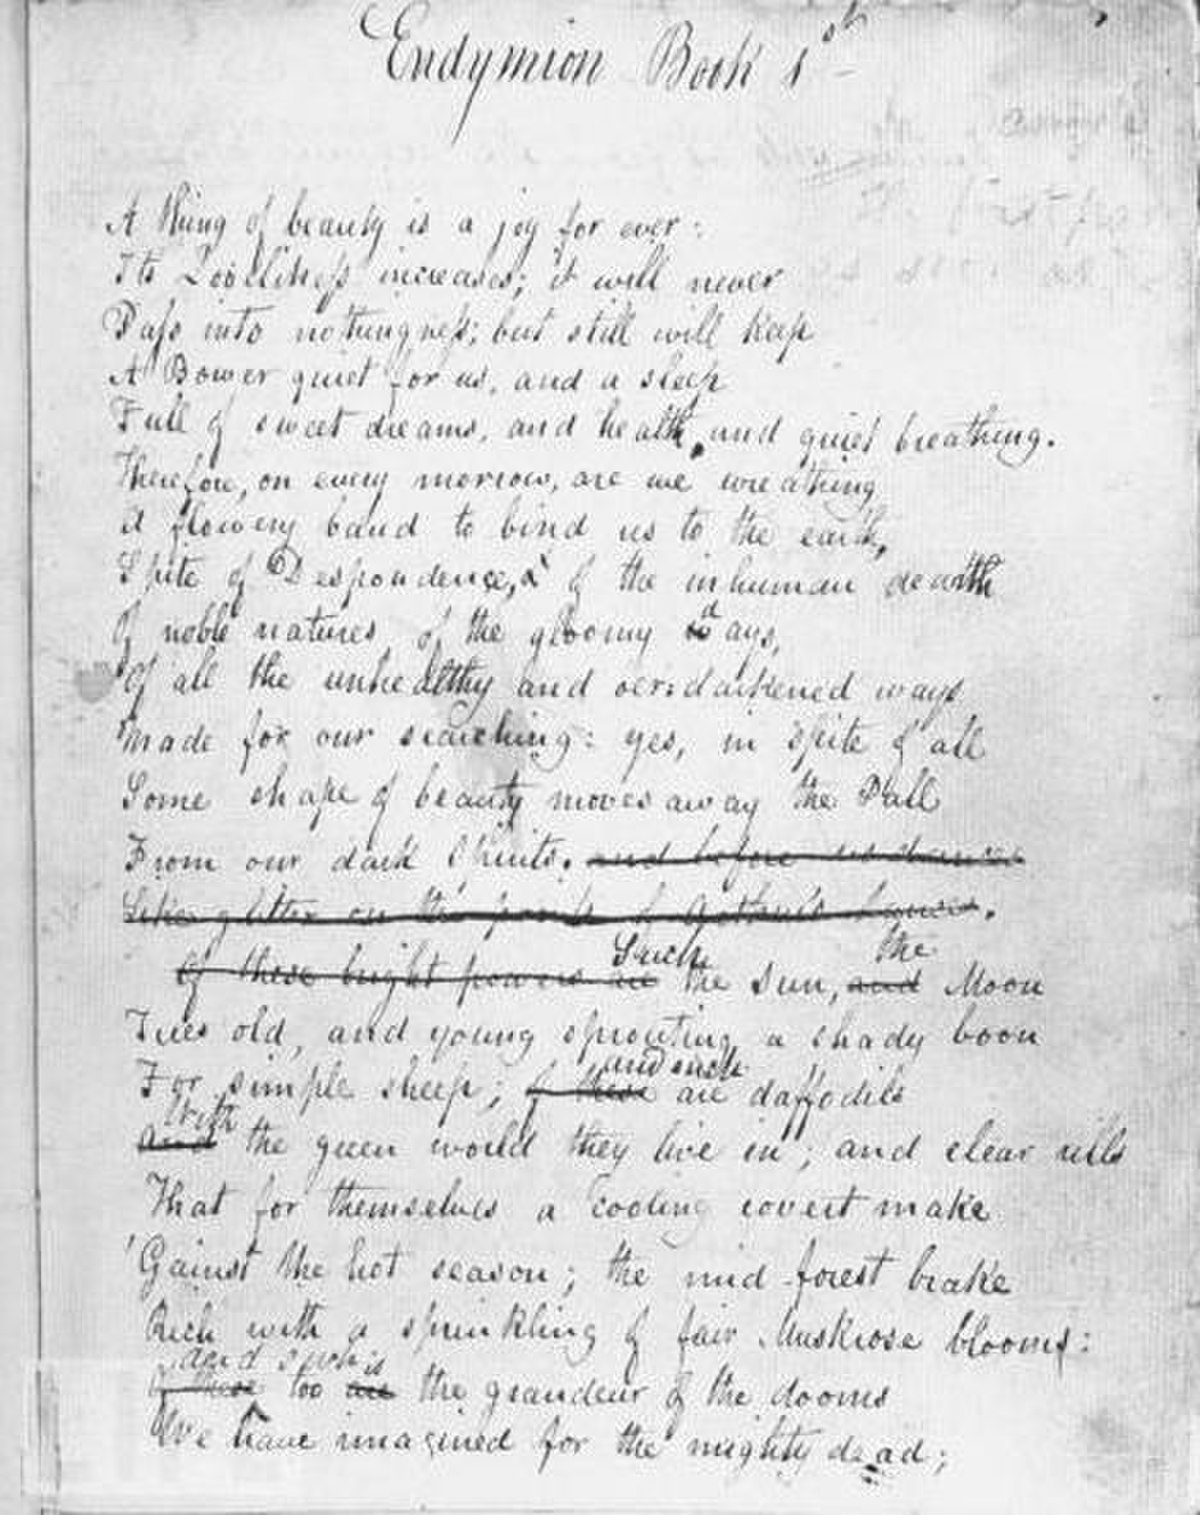 Endymion Book 1st
A thing of beauty is a joy for ever:
Its Loveliness increases; it will never
Pass into nothingness; but still will keep
A Bower quiet for us, and a sleep
Full of sweet dreams, and health, and quiet breathing.
Therefore, on every morrow, are we wreathing
A flowery band to bind us to the earth,
Spite of Despondence, of the inhuman dearth
Of noble natures, of the gloomy days,
Of all the unhealthy and oer-darkened ways
Made for our searching: yes, in spite of all
Some shape of beauty moves away the Pall
From our dark Spirits. and before us dances
Like glitter on the points of Arthur's Lances.
Such the
Of these bright powers are the Sun, and Moon
Trees old, and young sprouting a shady boon
and such
For simple sheep; of these are daffodils
With
And the green world they live in; and clear rills
That for themselves a cooling covert make
'Gainst the hot season; the mid-forest brake
Rich with a sprinkling of fair Muskrose blooms:
and such is
Of these too are the grandeur of the dooms
We have imagined for the mighty dead;